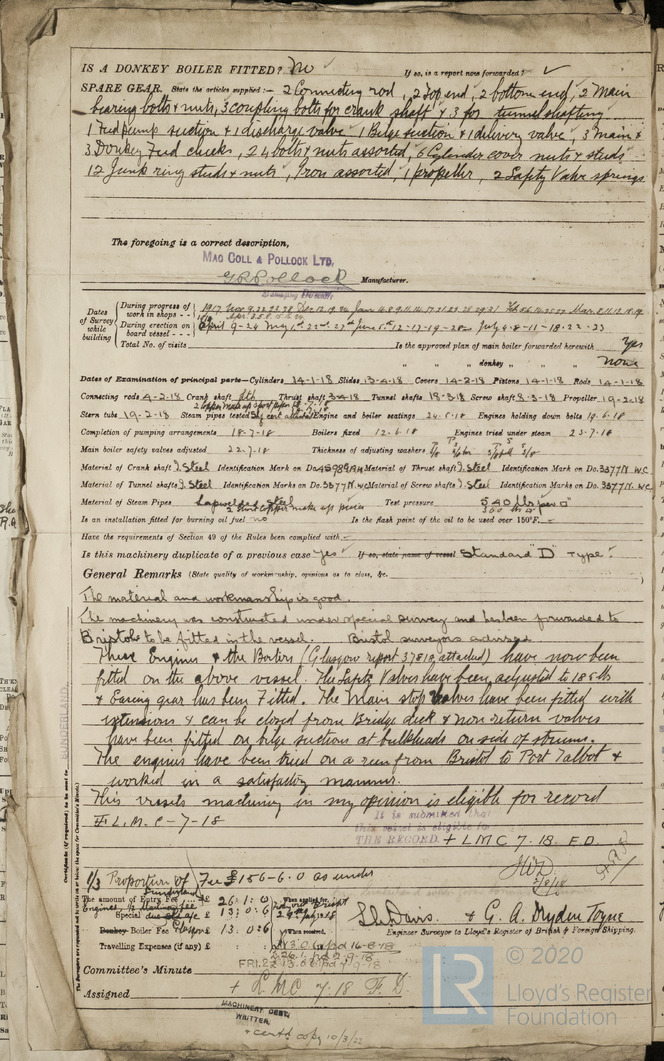 IS A DONKEY BOILER FITTED? No If so, is a report now forwarded?
SPARE GEAR. State the articles supplied:— 2 Connecting rod, 2 Top end, 2 bottom end, 2 Main
bearing bolts & nuts, 3 coupling bolts for crank shaft & 3 for tunnel shafting
1 Feed pump suction & 1 discharge valve 1 Bilge suction & 1 delivery valve, 3 main &
3 Donkey Feed checks, 24 bolts & nuts assorted, 6 Cylinder cover nuts & studs
12 Junk ring studs & nuts, Iron assorted, 1 propeller, 2 Safety Valve springs
The foregoing is a correct description,
MAC COLL & POLLOCK LTD.
G R Pollock Manufacturer.
Managing Director
Dates of Survey while building
During progress of work in shops - - 1917
During erection on board vessel - - - April 9-24 May 1st 22nd 27th June 5th 12-17-19-28 July 4-8-11-18-22-23
Total No. of visits Is the approved plan of main boiler forwarded herewith Yes
" " " donkey " " none
Dates of Examination of principal parts—Cylinders 14-1-18 Slides 13-4-18 Covers 14-2-18 Pistons 14-1-18 Rods 14-1-18
Connecting rods 4-2-18 Crank shaft Thrust shaft 3-4-18 Tunnel shafts 18-3-18 Screw shaft 8-3-18 Propeller 19-2-18
Stern tube 19-2-18 Steam pipes tested Engine and boiler seatings 24-5-18 Engines holding down bolts 19-6-18
Completion of pumping arrangements 18-7-18 Boilers fixed 12-6-18 Engines tried under steam 23-7-18
Main boiler safety valves adjusted 22-7-18 Thickness of adjusting washers
Material of Crank shaft I. Steel Identification Mark on Do. Material of Thrust shaft I. Steel Identification Mark on Do. 3377N. W.C
Material of Tunnel shafts I. Steel Identification Marks on Do. 3377N. W.C Material of Screw shafts I. Steel Identification Marks on Do. 3377N. W.C.
Material of Steam Pipes Lapwelded Steel Test pressure 540 lbs per □"
2 copper make up pieces
Is an installation fitted for burning oil fuel no Is the flash point of the oil to be used over 150°F.
Have the requirements of Section 49 of the Rules been complied with
Is this machinery duplicate of a previous case Yes If so, state name of vessel Standard "D" Type
General Remarks (State quality of workmanship, opinions as to class, &c.
The material and workmanship is good.
The machinery was constructed under special survey and has been forwarded to
Bristol to be fitted in the vessel. Bristol surveyors advised.
These Engines & the Boilers (Glasgow report 37819 attached) have now been
fitted on the above vessel. The Safety Valves have been adjusted to 185 lbs
& Easing gear has been Fitted. The Main stop Valves have been fitted with
extensions & can be closed from Bridge deck & non return valves
have been fitted on bilge suctions at bulkheads on side of strums.
The engines have been tried on a run from Bristol to Port Talbot &
worked in a satisfactory manner.
This vessels machinery in my opinion is eligible for record
+ L.M.C - 7-18
It is submitted that
this vessel is eligible for
THE RECORD. + LMC 7.18. F.D.
SUNDERLAND
Certificate (if required) to be sent to
1/3 Proportion of Fee £156-6.0 as under
Sunderland
The amount of Entry Fee £ 26 : 1 : 0 When applied for,
Special £ 13 : 0 : 6
Donkey Boiler Fee £ 13 . 0 : 6 When received,
Travelling Expenses (if any) £
S. L. Davis. & G. A. Dryden Toyne
Engineer Surveyor to Lloyd's Register of British & Foreign Shipping.
Committee's Minute
Assigned + L.M.C 7.18 F.D.
MACHINERY CERT. WRITTEN.
+ certf. copy 10/3/22
© 2020
LR
Lloyd's Register
Foundation